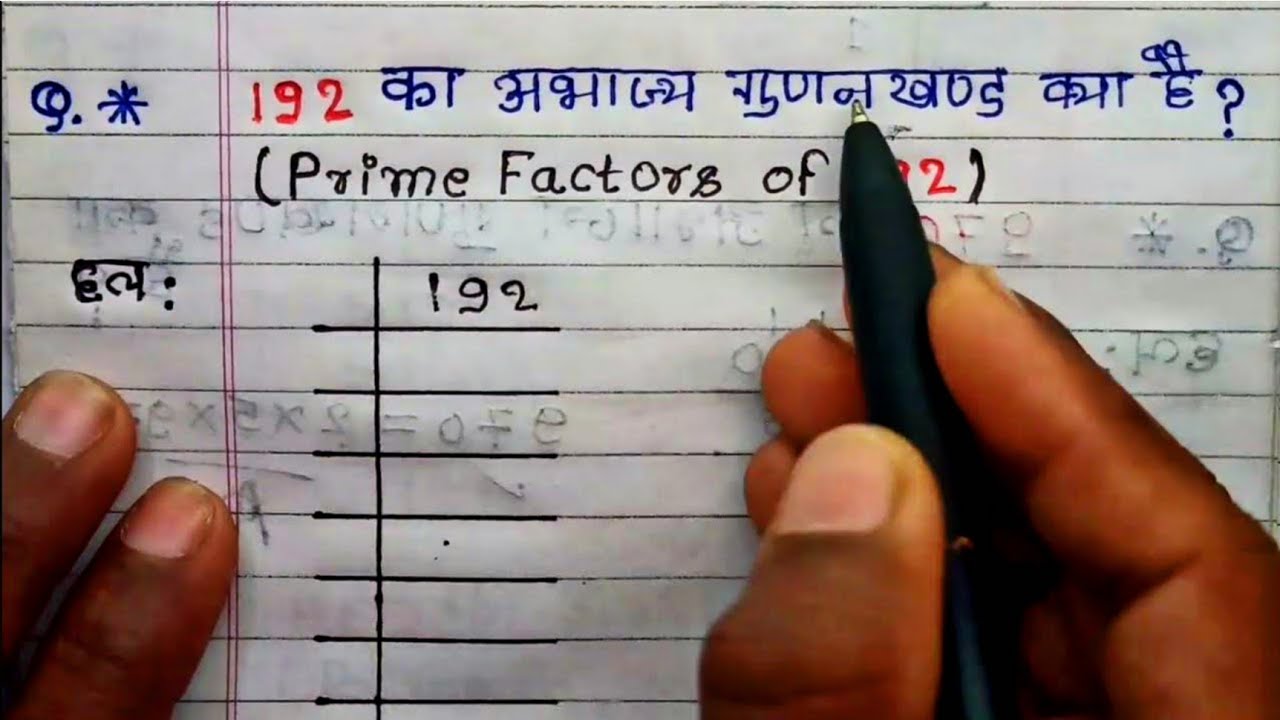 Q.* 192 का अभाज्य गुणनखण्ड क्या है ?
(Prime Factors of 2)
हल : 192